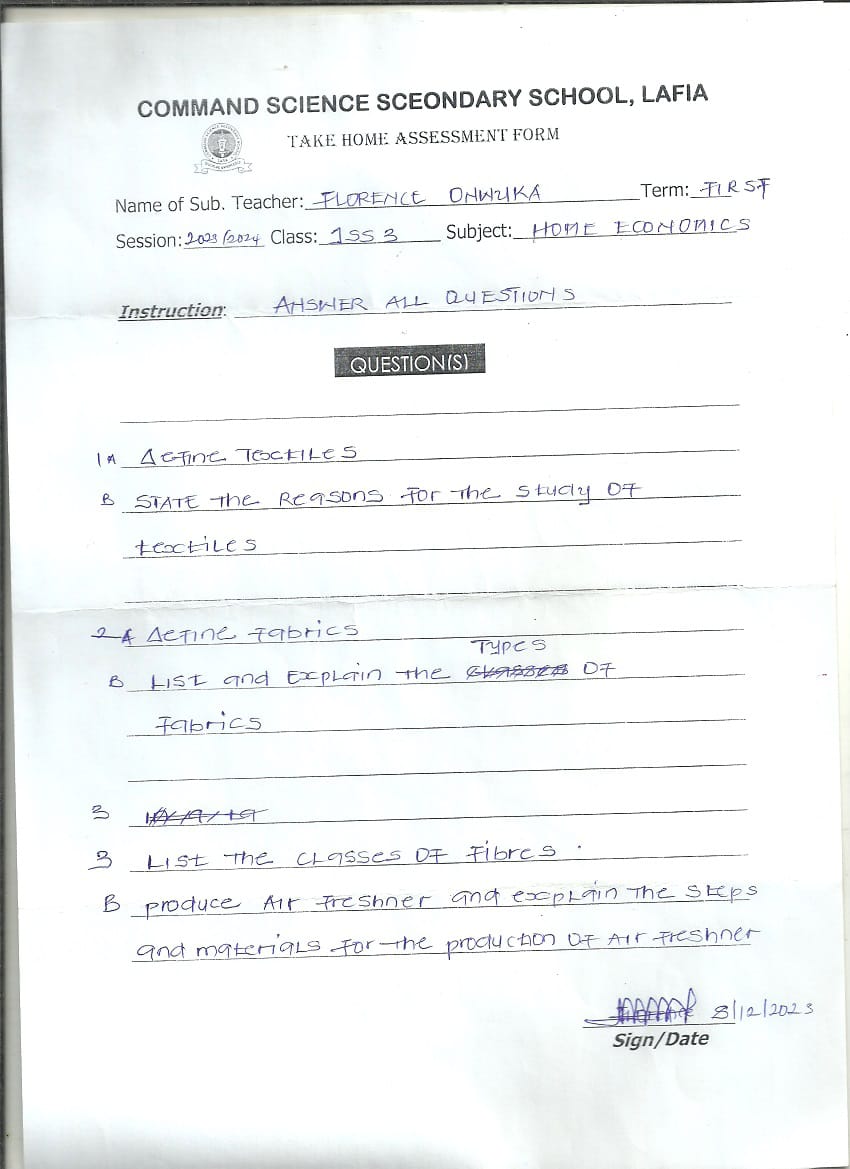 COMMAND SCIENCE SCEONDARY SCHOOL, LAFIA
TAKE HOME ASSESSMENT FORM
Name of Sub. Teacher: FLORENCE ONWUKA Term: FIRST
Session: 2023/2024 Class: JSS 3 Subject: HOME ECONOMICS
Instruction: ANSWER ALL QUESTIONS
QUESTION(S)
1A Define Textiles
B STATE the Reasons for the study OF
textiles
2A Define Fabrics
TYPES
B LIST and Explain the OF
Fabrics
3
3 LIST the classes OF Fibres.
B produce AIR Freshner and explain the steps
and materials for the production OF AIR Freshner
8/12/2023
Sign/Date